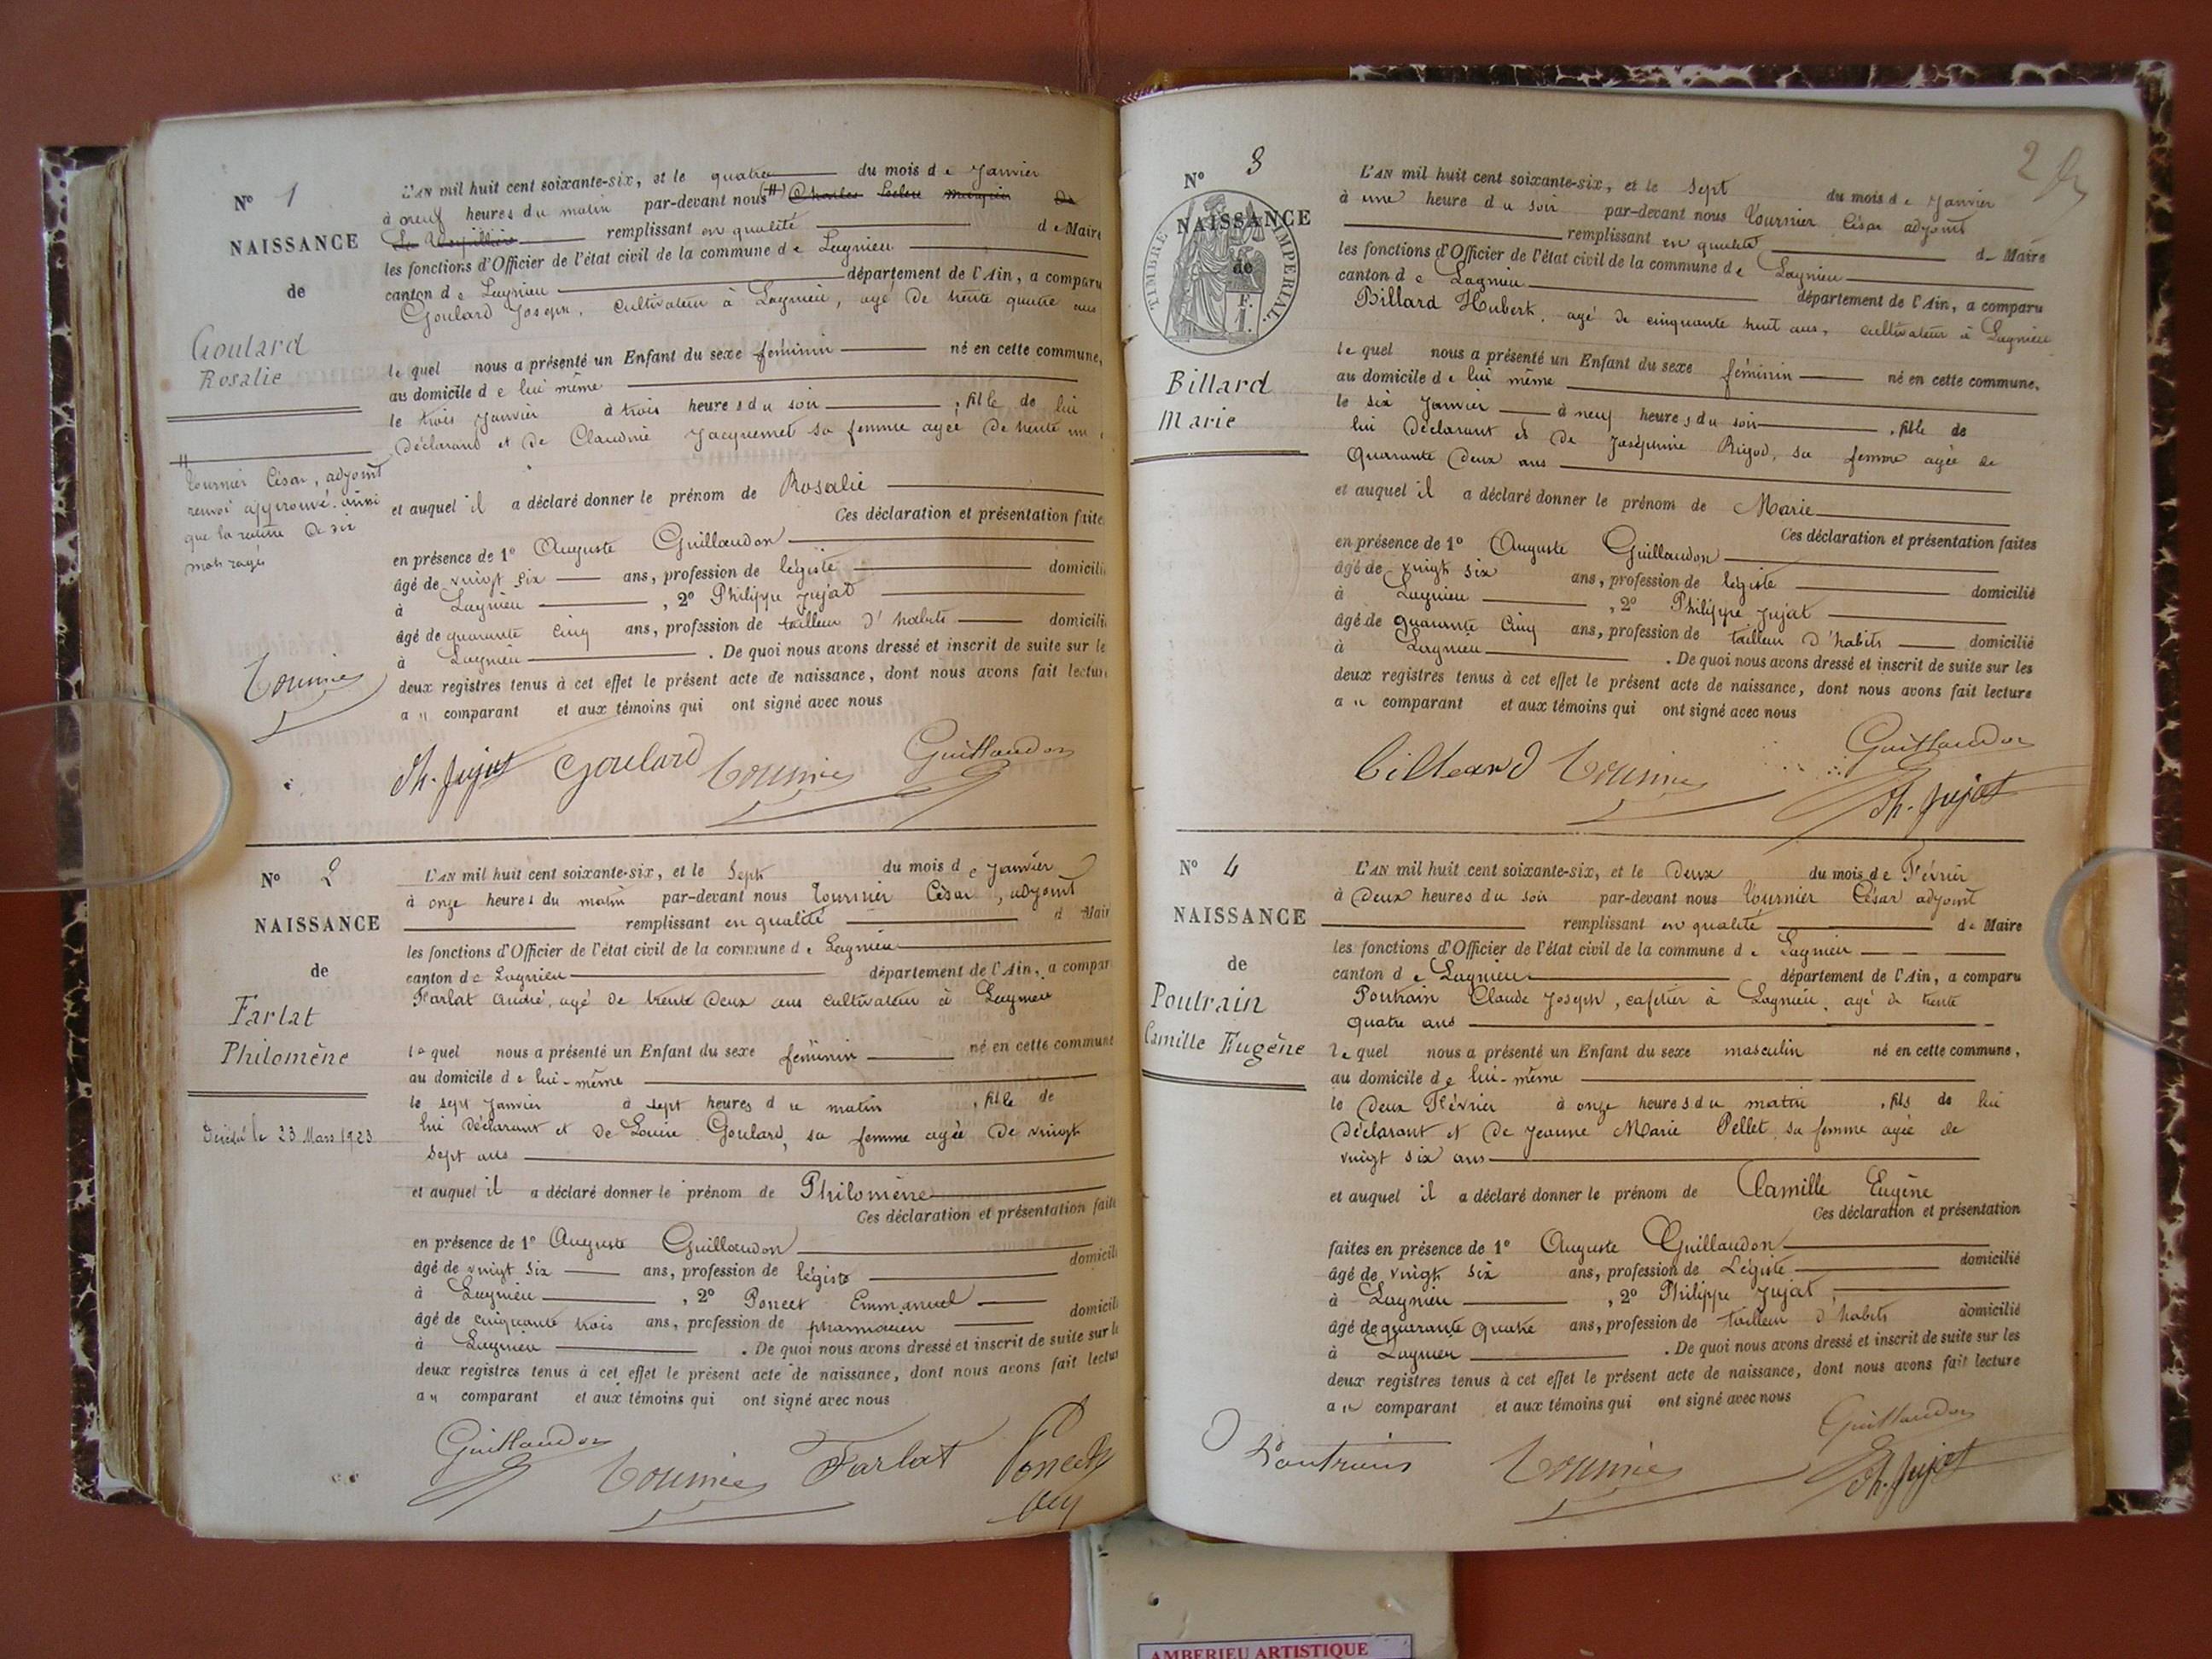 N° 1
NAISSANCE
de
Goulard
Rosalie
Tournier César, adjoint
renvoi approuvé ainsi
que la rature de six
mots rayés
Tournier
L'AN mil huit cent soixante-six, et le quatre du mois de Janvier
à neuf heures du matin par-devant nous (#) Charles
remplissant en qualité de Maire
les fonctions d'Officier de l'état civil de la commune de Lagnieu
canton de Lagnieu département de l'Ain, a comparu
Goulard Joseph, cultivateur à Lagnieu, agé de trente quatre ans
lequel nous a présenté un Enfant du sexe féminin né en cette commune,
au domicile de lui même
le trois Janvier à trois heures du soir, fille de lui
déclarant et de Claudine Jacquemet sa femme agée de trente un
et auquel il a déclaré donner le prénom de Rosalie
Ces déclaration et présentation faite
en présence de 1° Auguste Guillaudon
âgé de vingt six ans, profession de légiste domicili
à Lagnieu, 2° Philippe Jujat
âgé de quarante cinq ans, profession de tailleur d'habits domicili
à Lagnieu. De quoi nous avons dressé et inscrit de suite sur le
deux registres tenus à cet effet le présent acte de naissance, dont nous avons fait lectur
au comparant et aux témoins qui ont signé avec nous
Ph. Jujat Goulard Tournier Guillaudon
N° 2
NAISSANCE
de
Farlat
Philomène
Décédée le 23 Mars 1923
L'AN mil huit cent soixante-six, et le Sept du mois de Janvier
à onze heures du matin par-devant nous Tournier César, adjoint
remplissant en qualité d Mair
les fonctions d'Officier de l'état civil de la commune de Lagnieu
canton de Lagnieu département de l'Ain, a compar
Farlat André, agé de trente deux ans cultivateur à Lagnieu
lequel nous a présenté un Enfant du sexe féminin né en cette commune
au domicile de lui-même
le sept Janvier à sept heures du matin, fille de
lui déclarant et de Louise Goulard, sa femme agée de vingt
sept ans
et auquel il a déclaré donner le prénom de Philomène
Ces déclaration et présentation faite
en présence de 1° Auguste Guillaudon
âgé de vingt six ans, profession de légiste domicili
à Lagnieu, 2° Poncet Emmanuel
âgé de cinquante trois ans, profession de pharmacien domicili
à Lagnieu. De quoi nous avons dressé et inscrit de suite sur le
deux registres tenus à cet effet le présent acte de naissance, dont nous avons fait lectur
au comparant et aux témoins qui ont signé avec nous
Guillaudon Tournier Farlat Poncet
2
N° 3
NAISSANCE
de
TIMBRE IMPERIAL
Billard
Marie
L'AN mil huit cent soixante-six, et le Sept du mois de Janvier
à une heure du soir par-devant nous Tournier César adjoint
remplissant en qualité de Maire
les fonctions d'Officier de l'état civil de la commune de Lagnieu
canton de Lagnieu département de l'Ain, a comparu
Billard Hubert, agé de cinquante huit ans, cultivateur à Lagnieu
lequel nous a présenté un Enfant du sexe féminin né en cette commune,
au domicile de lui même
le six Janvier à neuf heures du soir, fille de
lui déclarant et de Joséphine Rigod, sa femme agée de
quarante deux ans
et auquel il a déclaré donner le prénom de Marie
Ces déclaration et présentation faites
en présence de 1° Auguste Guillaudon
âgé de vingt six ans, profession de légiste domicilié
à Lagnieu, 2° Philippe Jujat
âgé de quarante cinq ans, profession de tailleur d'habits domicilié
à Lagnieu. De quoi nous avons dressé et inscrit de suite sur les
deux registres tenus à cet effet le présent acte de naissance, dont nous avons fait lecture
au comparant et aux témoins qui ont signé avec nous
billeard Tournier Guillaudon
Ph. Jujat
N° 4
NAISSANCE
de
Poutrain
Camille Eugène
L'AN mil huit cent soixante-six, et le deux du mois de Février
à deux heures du soir par-devant nous Tournier César adjoint
remplissant en qualité de Maire
les fonctions d'Officier de l'état civil de la commune de Lagnieu
canton de Lagnieu département de l'Ain, a comparu
Poutrain Claude Joseph, cafetier à Lagnieu, agé de trente
quatre ans
lequel nous a présenté un Enfant du sexe masculin né en cette commune,
au domicile de lui-même
le deux Février à onze heures du matin, fils de lui
déclarant et de Jeanne Marie Pellet sa femme agée de
vingt six ans
et auquel il a déclaré donner le prénom de Camille Eugène
Ces déclaration et présentation
faites en présence de 1° Auguste Guillaudon
âgé de vingt six ans, profession de Légiste domicilié
à Lagnieu, 2° Philippe Jujat
âgé de quarante quatre ans, profession de tailleur d'habits domicilié
à Lagnieu. De quoi nous avons dressé et inscrit de suite sur les
deux registres tenus à cet effet le présent acte de naissance, dont nous avons fait lecture
au comparant et aux témoins qui ont signé avec nous
Poutrain Tournier Guillaudon
Ph. Jujat
AMBERIEU ARTISTIQUE